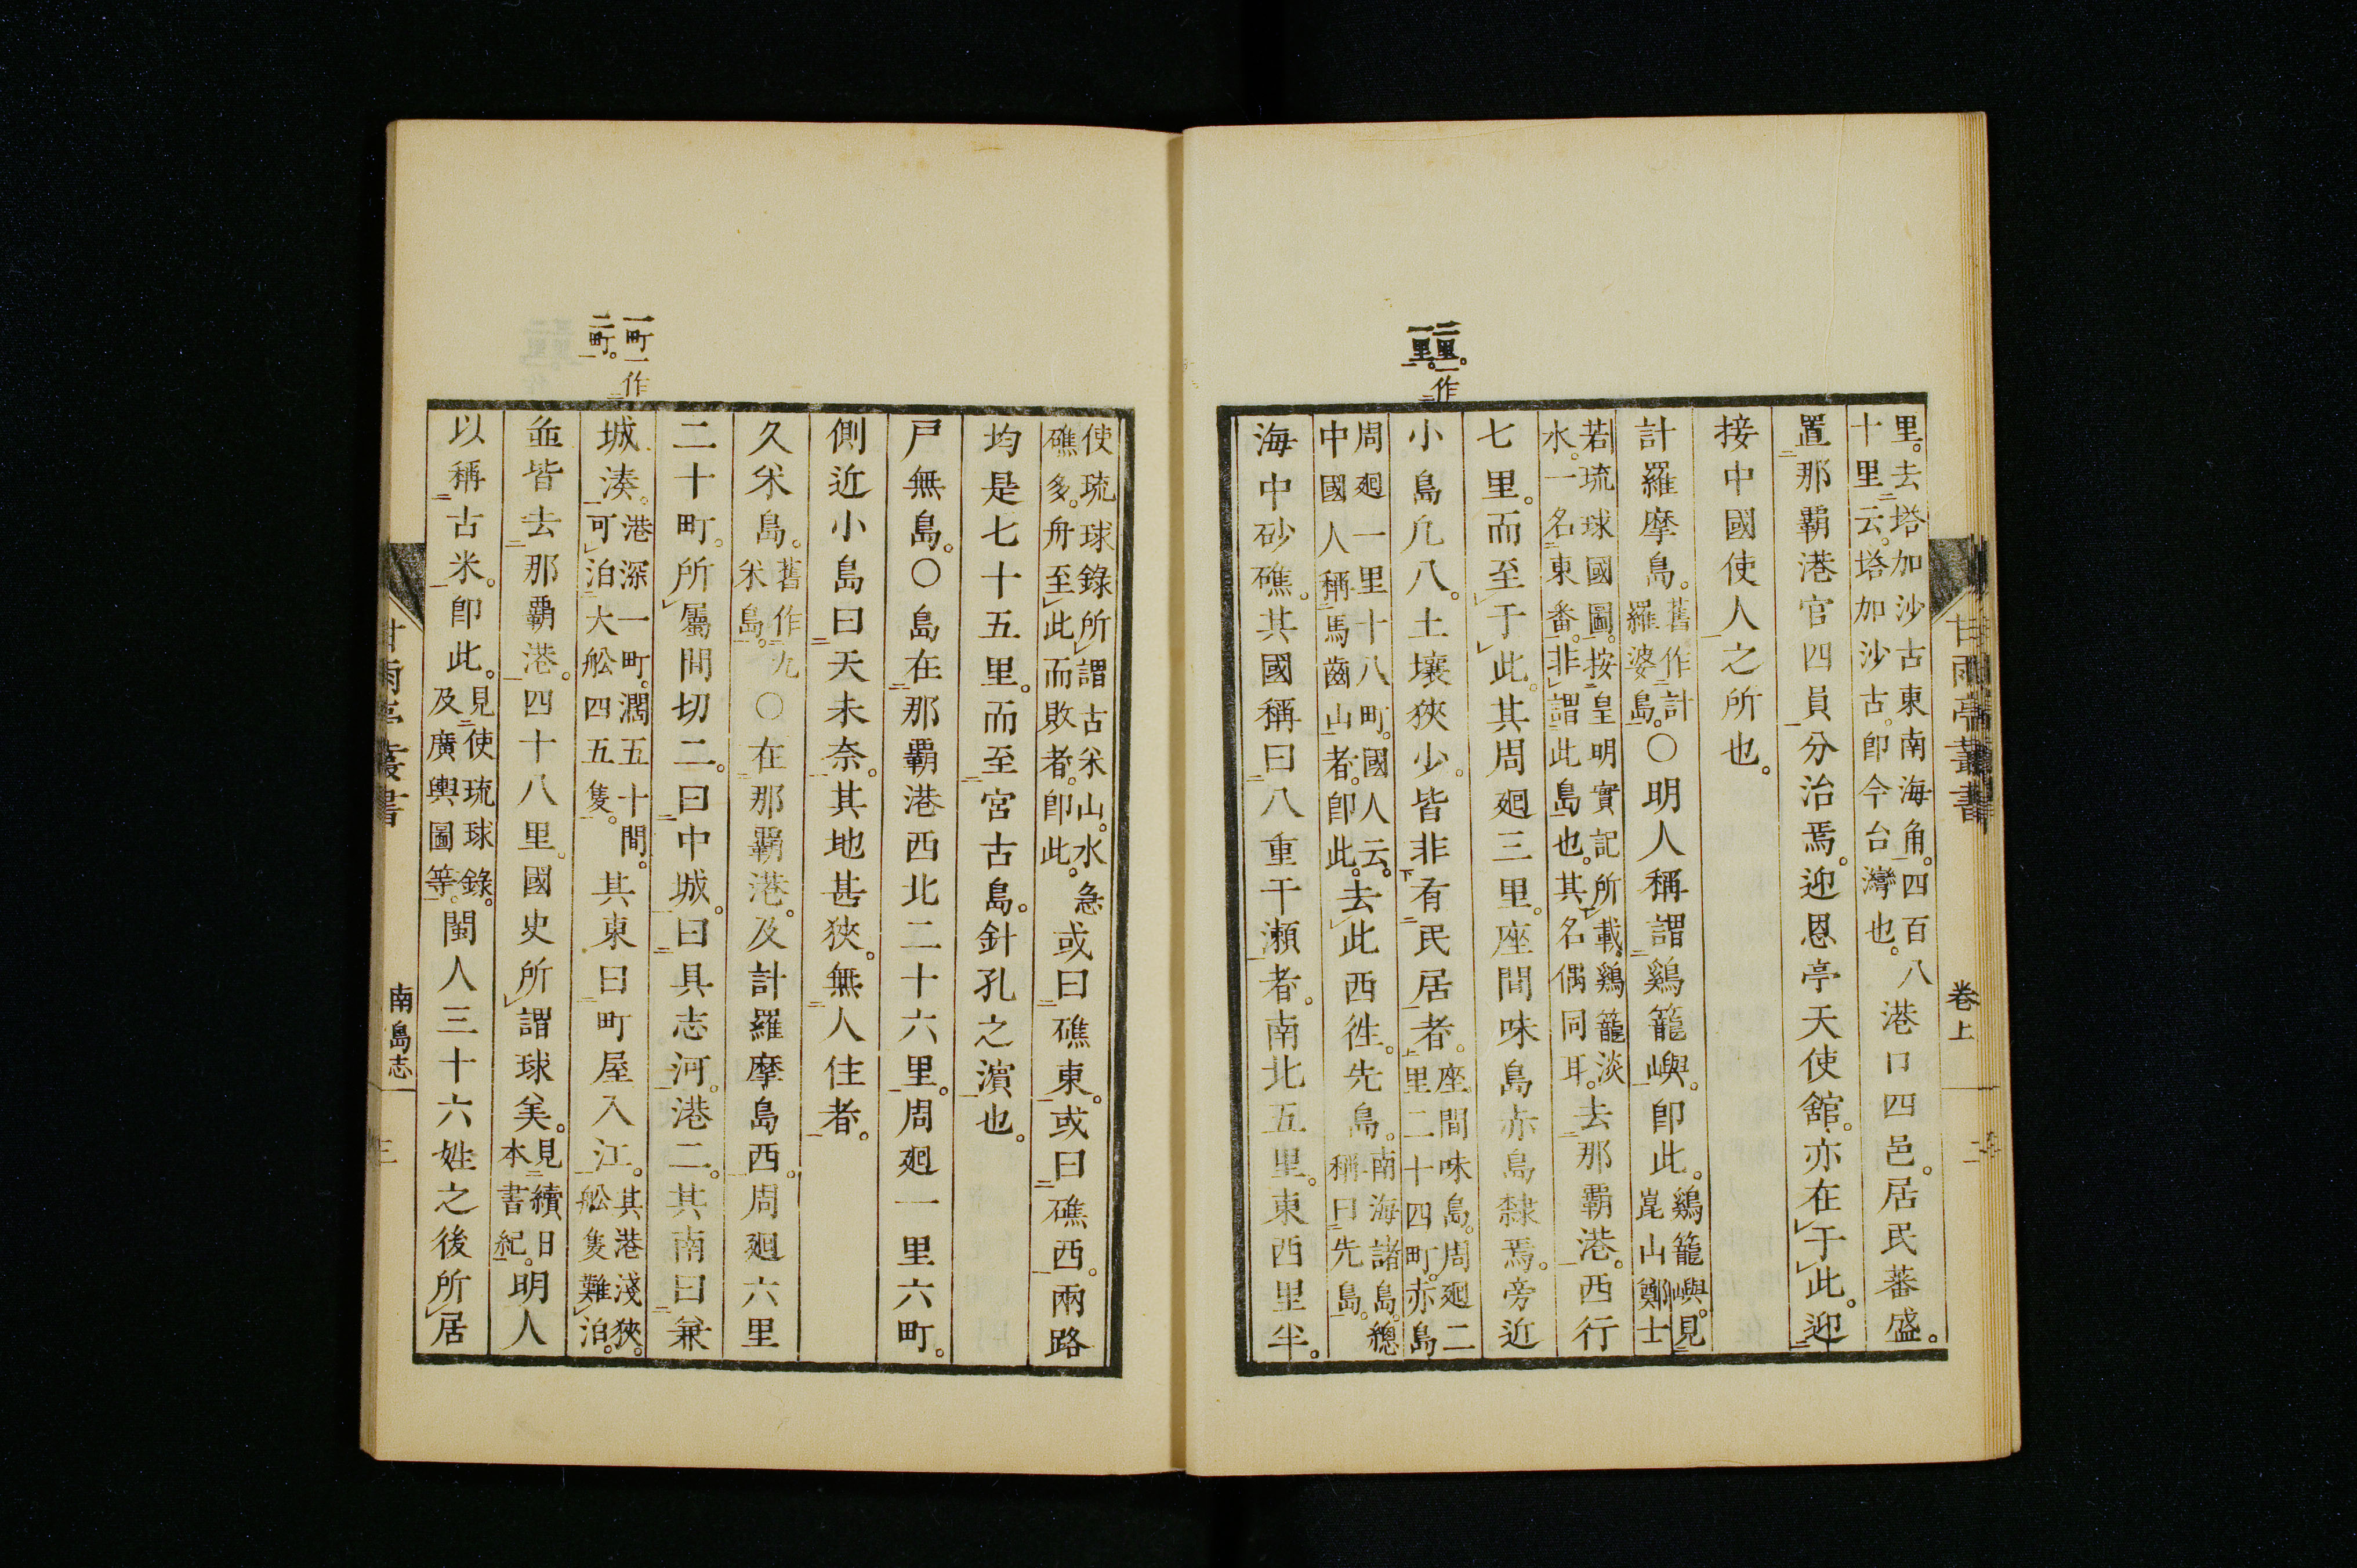 甘雨亭叢書
卷上
里。去塔加沙古東南海角。四百八
十里云。塔加沙古。卽今台灣也。
港口四邑。居民蕃盛。
置那覇港官四員分治焉。迎恩亭天使舘。亦在于此。迎
接中國使人之所也。
計羅摩島。
舊作計
羅婆島。
〇明人稱謂鷄籠嶼。卽此。
鷄籠嶼。見
崑山鄭士
若琉球國圖。按皇明實記所載。鷄籠淡
水。一名東番。非謂此島也。其名偶同耳。
去那覇港。西行
七里。而至于此。其周廻三里。座間味島赤島隸焉。旁近
小島凢八。土壤狹少。皆非有民居者。
座間味島。周廻二
里二十四町。赤島
二里。一作
一里。
周廻一里十八町。國人云。
中國人稱馬齒山者。卽此。
去此西徃。先島。
南海諸島。總
稱曰先島。
海中砂礁。其國稱曰八重干瀨者。南北五里。東西里半。
使琉球錄所謂古米山。水急
礁多。舟至此而敗者。卽此。
或曰礁東。或曰礁西。兩路
均是七十五里。而至宮古島。針孔之濵也。
戸無島。〇島在那覇港西北二十六里。周廻一里六町。
側近小島曰天未奈。其地甚狹。無人住者。
久米島。
舊作九
米島。
〇在那覇港。及計羅摩島西。周廻六里
二十町。所屬間切二。曰中城。曰具志河。港二。其南曰兼
城湊。
港深一町。濶五十間。
可泊大舩四五隻。
其東曰町屋入江。
其港淺狹。
舩隻難泊。
一町一作
二町。
並皆去那覇港。四十八里。國史所謂球美。
見續日
本書紀。
明人
以稱古米。卽此。
見使琉球錄。
及廣輿圖等。
閩人三十六姓之後所居
甘雨亭叢書
南島志
三